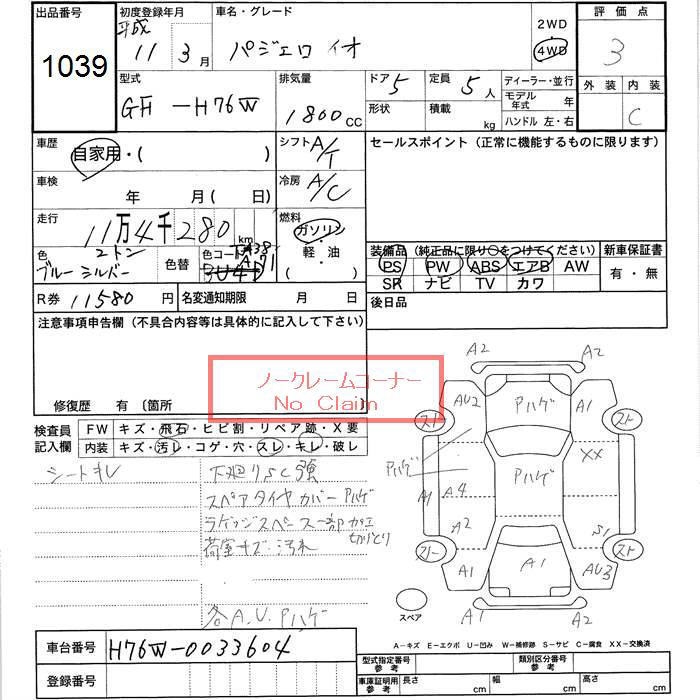 出品番号 初度登録年月 車名・グレード 2WD 評価点
1039 平成 11年 3月 パジェロ イオ 4WD 3
型式 排気量 ドア 5 定員 5人 ディーラー・並行 外装 内装
GF-H76W 1800cc 形状 積載 kg モデル年式 年 C
ハンドル 左・右
車歴 自家用・( ) シフト A/T セールスポイント(正常に機能するものに限ります)
車検 年 月( 日) 冷房 A/C
走行 11万4千280km 燃料 ガソリン
軽・油
( )
色 2トン ブルーシルバー 色替 色コード
装備品(純正品に限り○をつけてください) 新車保証書
PS PW ABS エアB AW 有・無
SR ナビ TV カワ
R券 11580円 名変通知期限 月 日 後日品
注意事項申告欄(不具合内容等は具体的に記入して下さい)
ノークレームコーナー
No Claim
修復歴 有 〔箇所
検査員記入欄 FW キズ・飛石・ヒビ割・リペア跡・X要
内装 キズ・汚レ・コゲ・穴・スレ・キレ・破レ
シートキレ 下廻りSC強
スペアタイヤカバーPハゲ
ラゲッジスペース一部加工
切りとり
荷室キズ・汚れ
各A.U.Pハゲ
A2 A2
AU2 Pハゲ A1
スト スト
Pハゲ Pハゲ XX
A1 A4
A2 S1
スト
A1 A1 AU3
A1 A2
スペア
A-キズ E-エクボ U-凹み W-補修跡 S-サビ C-腐食 XX-交換済
車台番号 H76W-0033604
登録番号
型式指定番号 参考 類別区分番号 参考
車庫証明用 参考 長さ cm 幅 cm 高さ cm